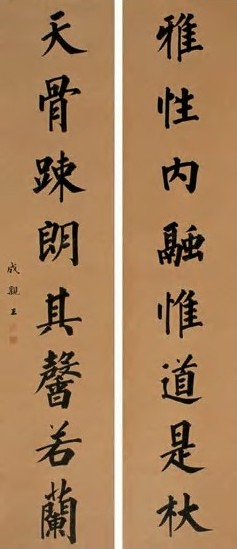 雅性内融惟道是杖
天骨踈朗其馨若蘭
成親王